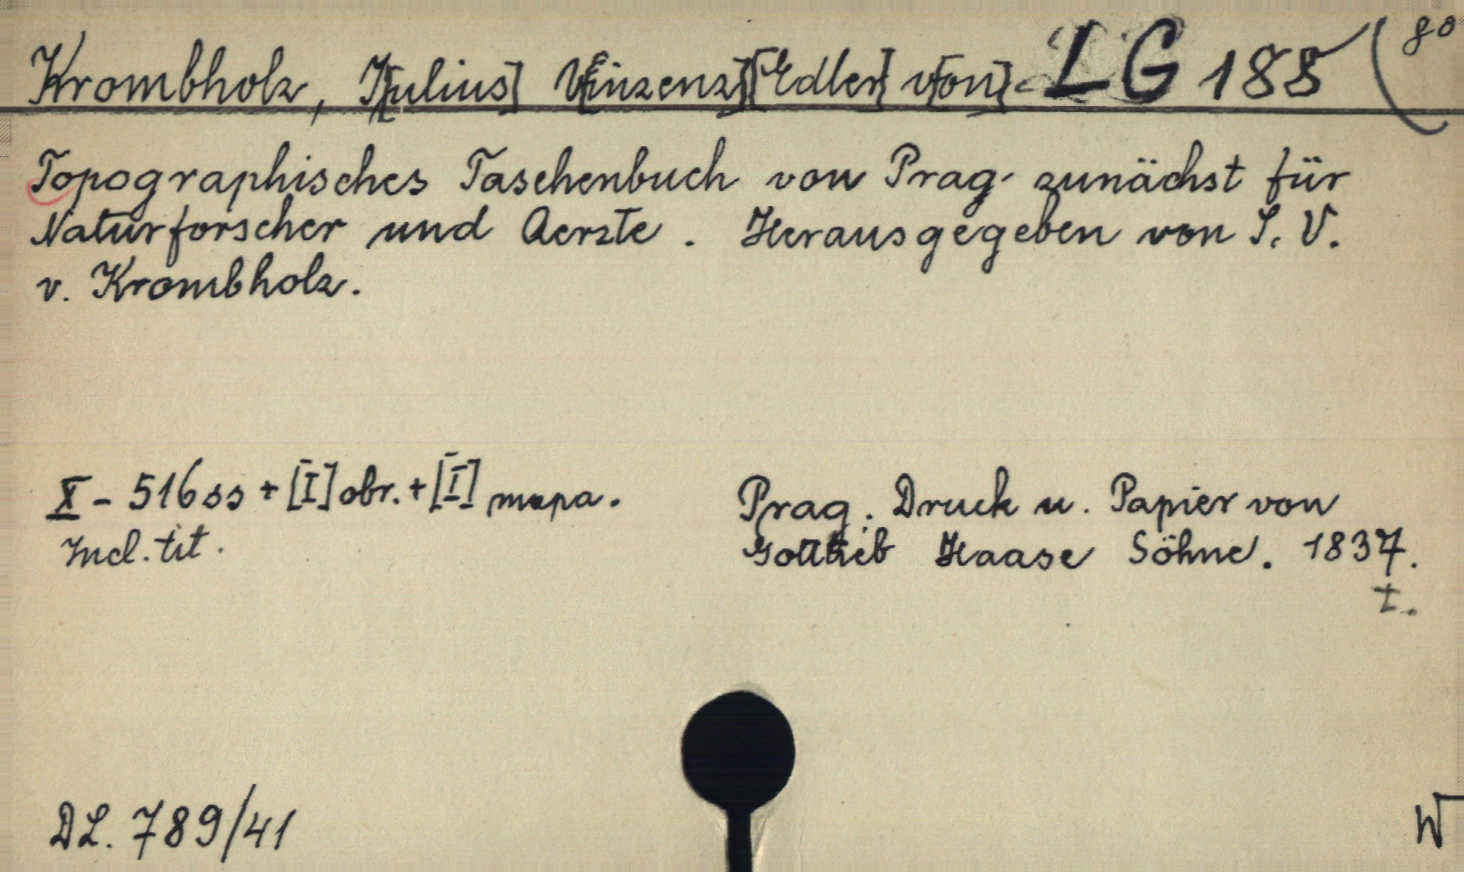 Krombholz, J[ulius] V[inzenz] [Edler] v[on] LG 188 80
Topographisches Taschenbuch von Prag zunächst für
Naturforscher und Aerzte. Herausgegeben von J. V.
v. Krombholz.
X - 516 ss + [I] obr. + [I] mapa.
Incl. tit.
Prag. Druck u. Papier von
Gottlieb Haase Söhne. 1837.
t.
DL. 789/41
W